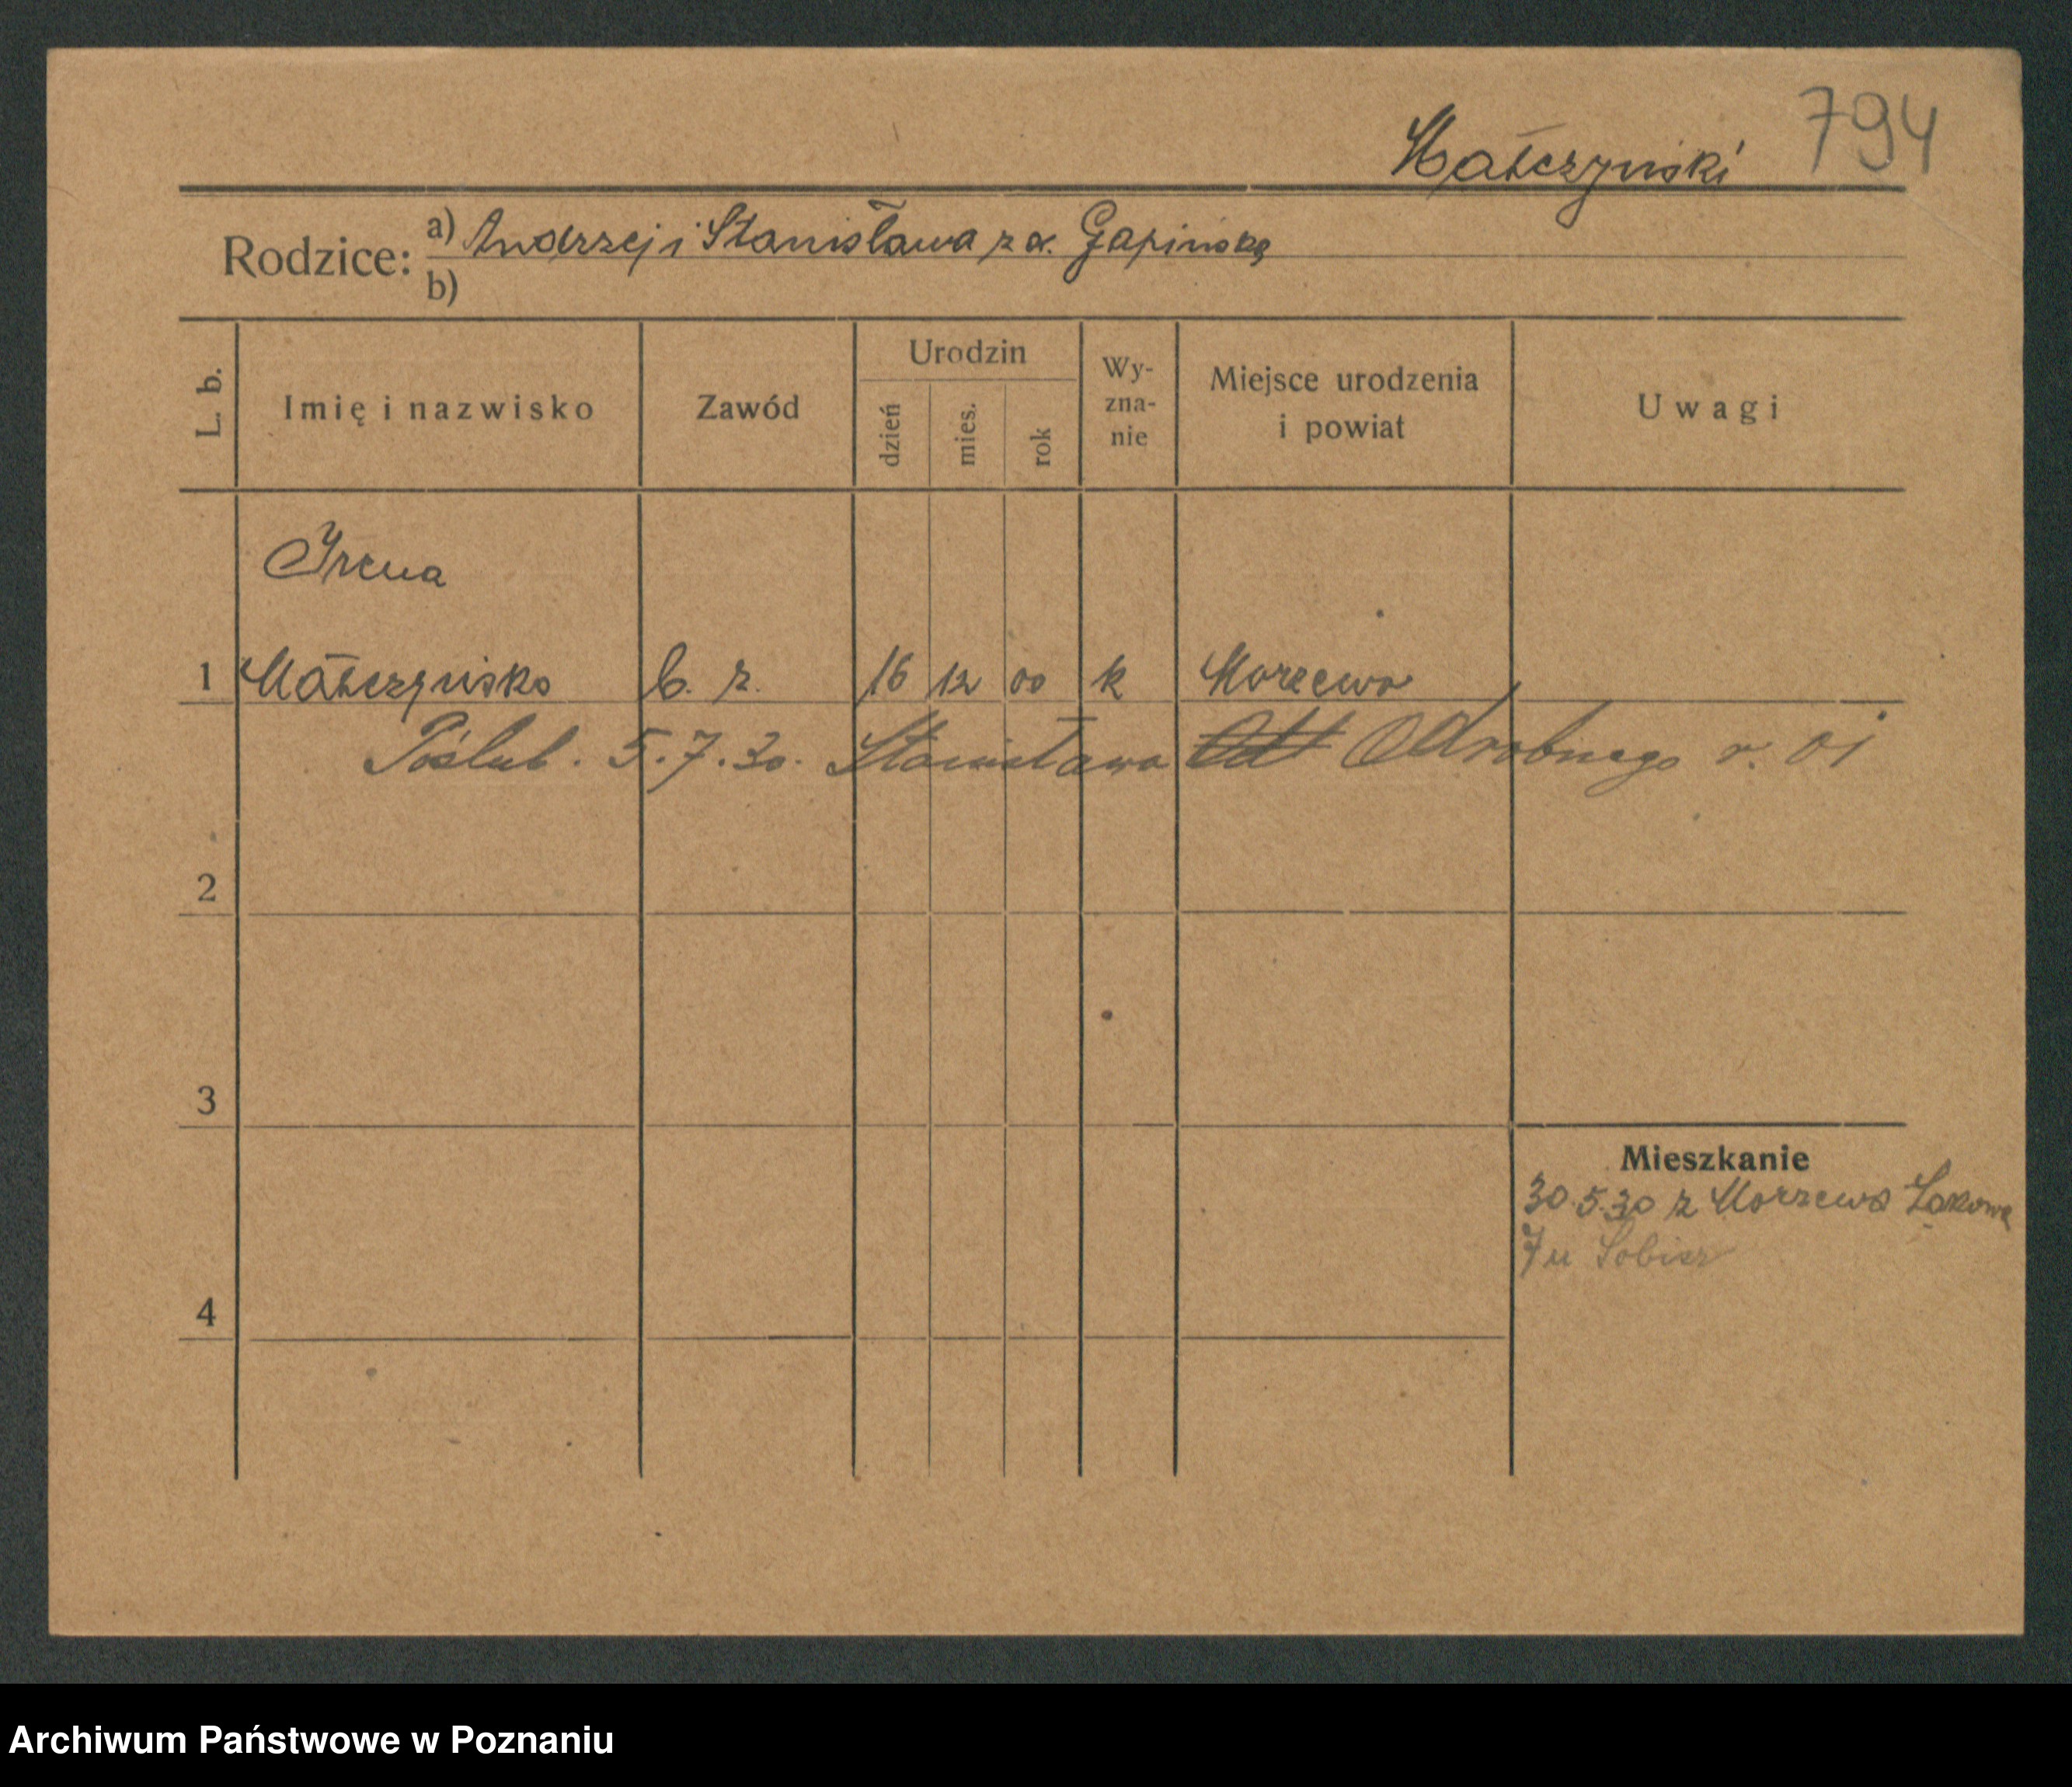 794
Małczyński
Rodzice: a) Andrzej i Stanisława z d. Gapińska
b)
L. b.
Imię i nazwisko
Zawód
Urodzin
dzień
mies.
rok
Wy-
zna-
nie
Miejsce urodzenia
i powiat
Uwagi
Irena
1 Małczyńska b. z. 16 12 00 k Morzewo
Poślub. 5.7.30. Stanisława Odrobnego r. 01
2
3
4
Mieszkanie
30.5.30 z Morzewa Łąkowa
7 u Sobisz
Archiwum Państwowe w Poznaniu